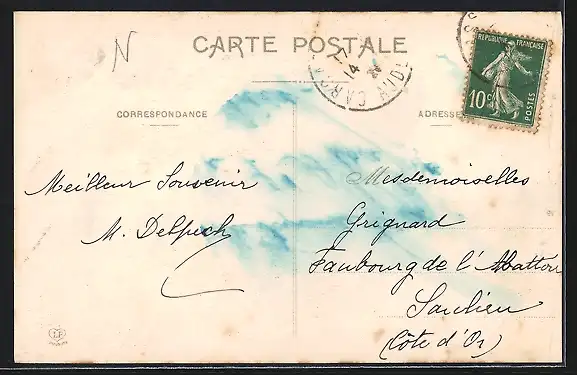 N
CARTE POSTALE
CORRESPONDANCE
ADRESSE
REPUBLIQUE FRANÇAISE
10c
POSTES
17
14
AUDE
Meilleur Souvenir
M. Delpech
Mesdemoiselles
Grignard
Faubourg de l'Abattoir
Saulieu
(Côte d'Or)